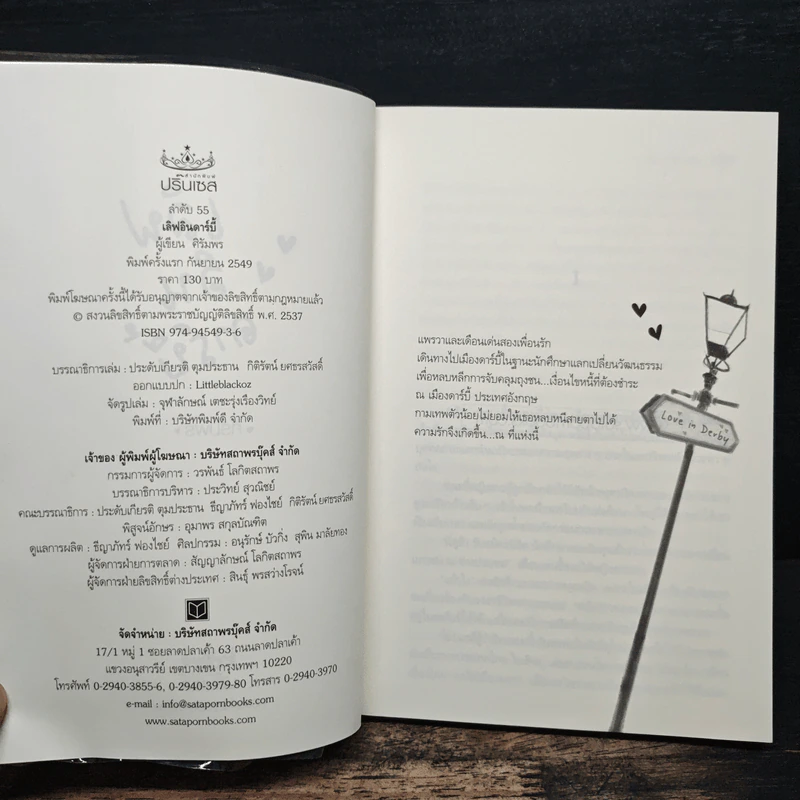 สำนักพิมพ์
ปริ๊นเซส
ลำดับ 55
เลิฟอินดาร์บี้
ผู้เขียน ศิรัมพร
พิมพ์ครั้งแรก กันยายน 2549
ราคา 130 บาท
พิมพ์โฆษณาครั้งนี้ได้รับอนุญาตจากเจ้าของลิขสิทธิ์ตามกฎหมายแล้ว
© สงวนลิขสิทธิ์ตามพระราชบัญญัติลิขสิทธิ์ พ.ศ. 2537
ISBN 974-94549-3-6
บรรณาธิการเล่ม : ประดับเกียรติ ตุมประธาน กิติรัตน์ ยศธรสวัสดิ์
ออกแบบปก : Littleblackoz
จัดรูปเล่ม : จุฬาลักษณ์ เตชะรุ่งเรืองวิทย์
พิมพ์ที่ : บริษัทพิมพ์ดี จำกัด
เจ้าของ ผู้พิมพ์ผู้โฆษณา : บริษัทสถาพรบุ๊คส์ จำกัด
กรรมการผู้จัดการ : วรพันธ์ โลกิตสถาพร
บรรณาธิการบริหาร : ประวิทย์ สุวณิชย์
คณะบรรณาธิการ : ประดับเกียรติ ตุมประธาน ธีญาภัทร์ ฟองไชย์ กิติรัตน์ ยศธรสวัสดิ์
พิสูจน์อักษร : อุมาพร สกุลบัณฑิต
ดูแลการผลิต : ธีญาภัทร์ ฟองไชย์ ศิลปกรรม : อนุรักษ์ บัวกิ่ง สุพิน มาลัยทอง
ผู้จัดการฝ่ายการตลาด : สัญญาลักษณ์ โลกิตสถาพร
ผู้จัดการฝ่ายลิขสิทธิ์ต่างประเทศ : สินธุ์ พรสว่างโรจน์
จัดจำหน่าย : บริษัทสถาพรบุ๊คส์ จำกัด
17/1 หมู่ 1 ซอยลาดปลาเค้า 63 ถนนลาดปลาเค้า
แขวงอนุสาวรีย์ เขตบางเขน กรุงเทพฯ 10220
โทรศัพท์ 0-2940-3855-6, 0-2940-3979-80 โทรสาร 0-2940-3970
e-mail : info@satapornbooks.com
www.satapornbooks.com
แพรวาและเดือนเด่นสองเพื่อนรัก
เดินทางไปเมืองดาร์บี้ในฐานะนักศึกษาแลกเปลี่ยนวัฒนธรรม
เพื่อหลบหลีกการจับคลุมถุงชน...เงื่อนไขหนี้ที่ต้องชำระ
ณ เมืองดาร์บี้ ประเทศอังกฤษ
กามเทพตัวน้อยไม่ยอมให้เธอหลบหนีสายตาไปได้
ความรักจึงเกิดขึ้น...ณ ที่แห่งนี้
Love in Derby